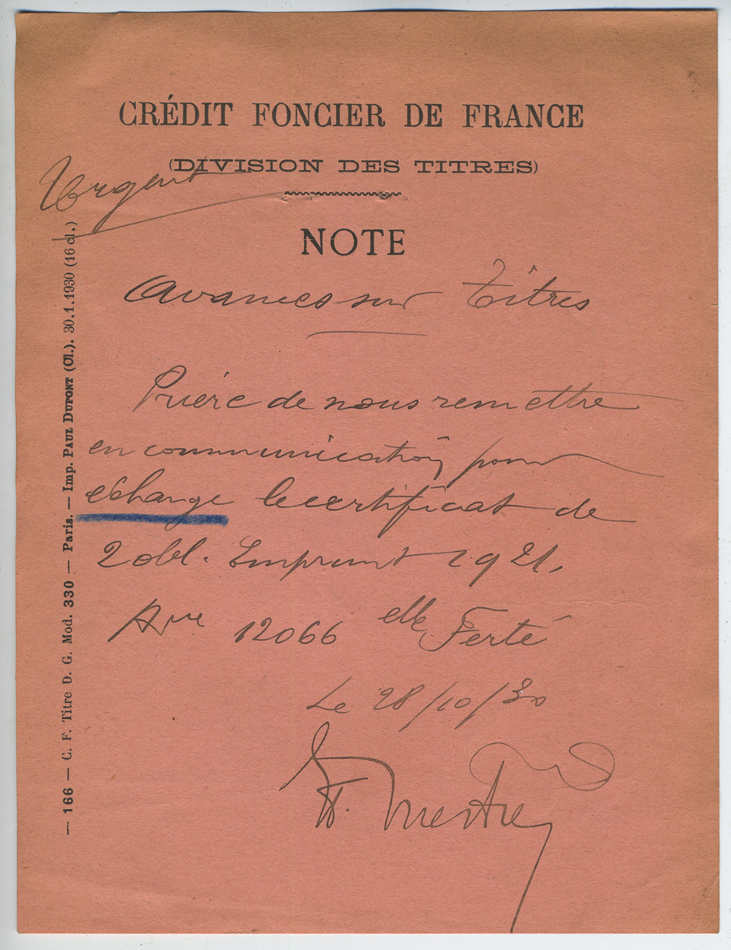 CRÉDIT FONCIER DE FRANCE
(DIVISION DES TITRES)
Urgent
NOTE
Avances sur Titres
Prière de nous remettre
en communication pour
échange le certificat de
2 obl. Emprunt 1921.
12066 elle Ferté
Le 28/10/30
— 166 — C. F. Titre D. G. Mod. 330 — Paris. — Imp. PAUL DUPONT (Cl.). 30.1.1930 (16 cl.)